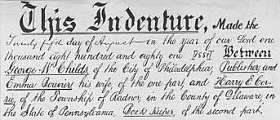 This Indenture, Made the
Twenty first day of August in the year of our Lord one
thousand eight hundred and eighty one Between
George W. Childs of the City of Philadelphia, Publisher, and
Emma Bouvier his wife of the one part and Harry E.
of the Township of Radnor, in the County of Delaware, in
the State of Pennsylvania, of the second part.